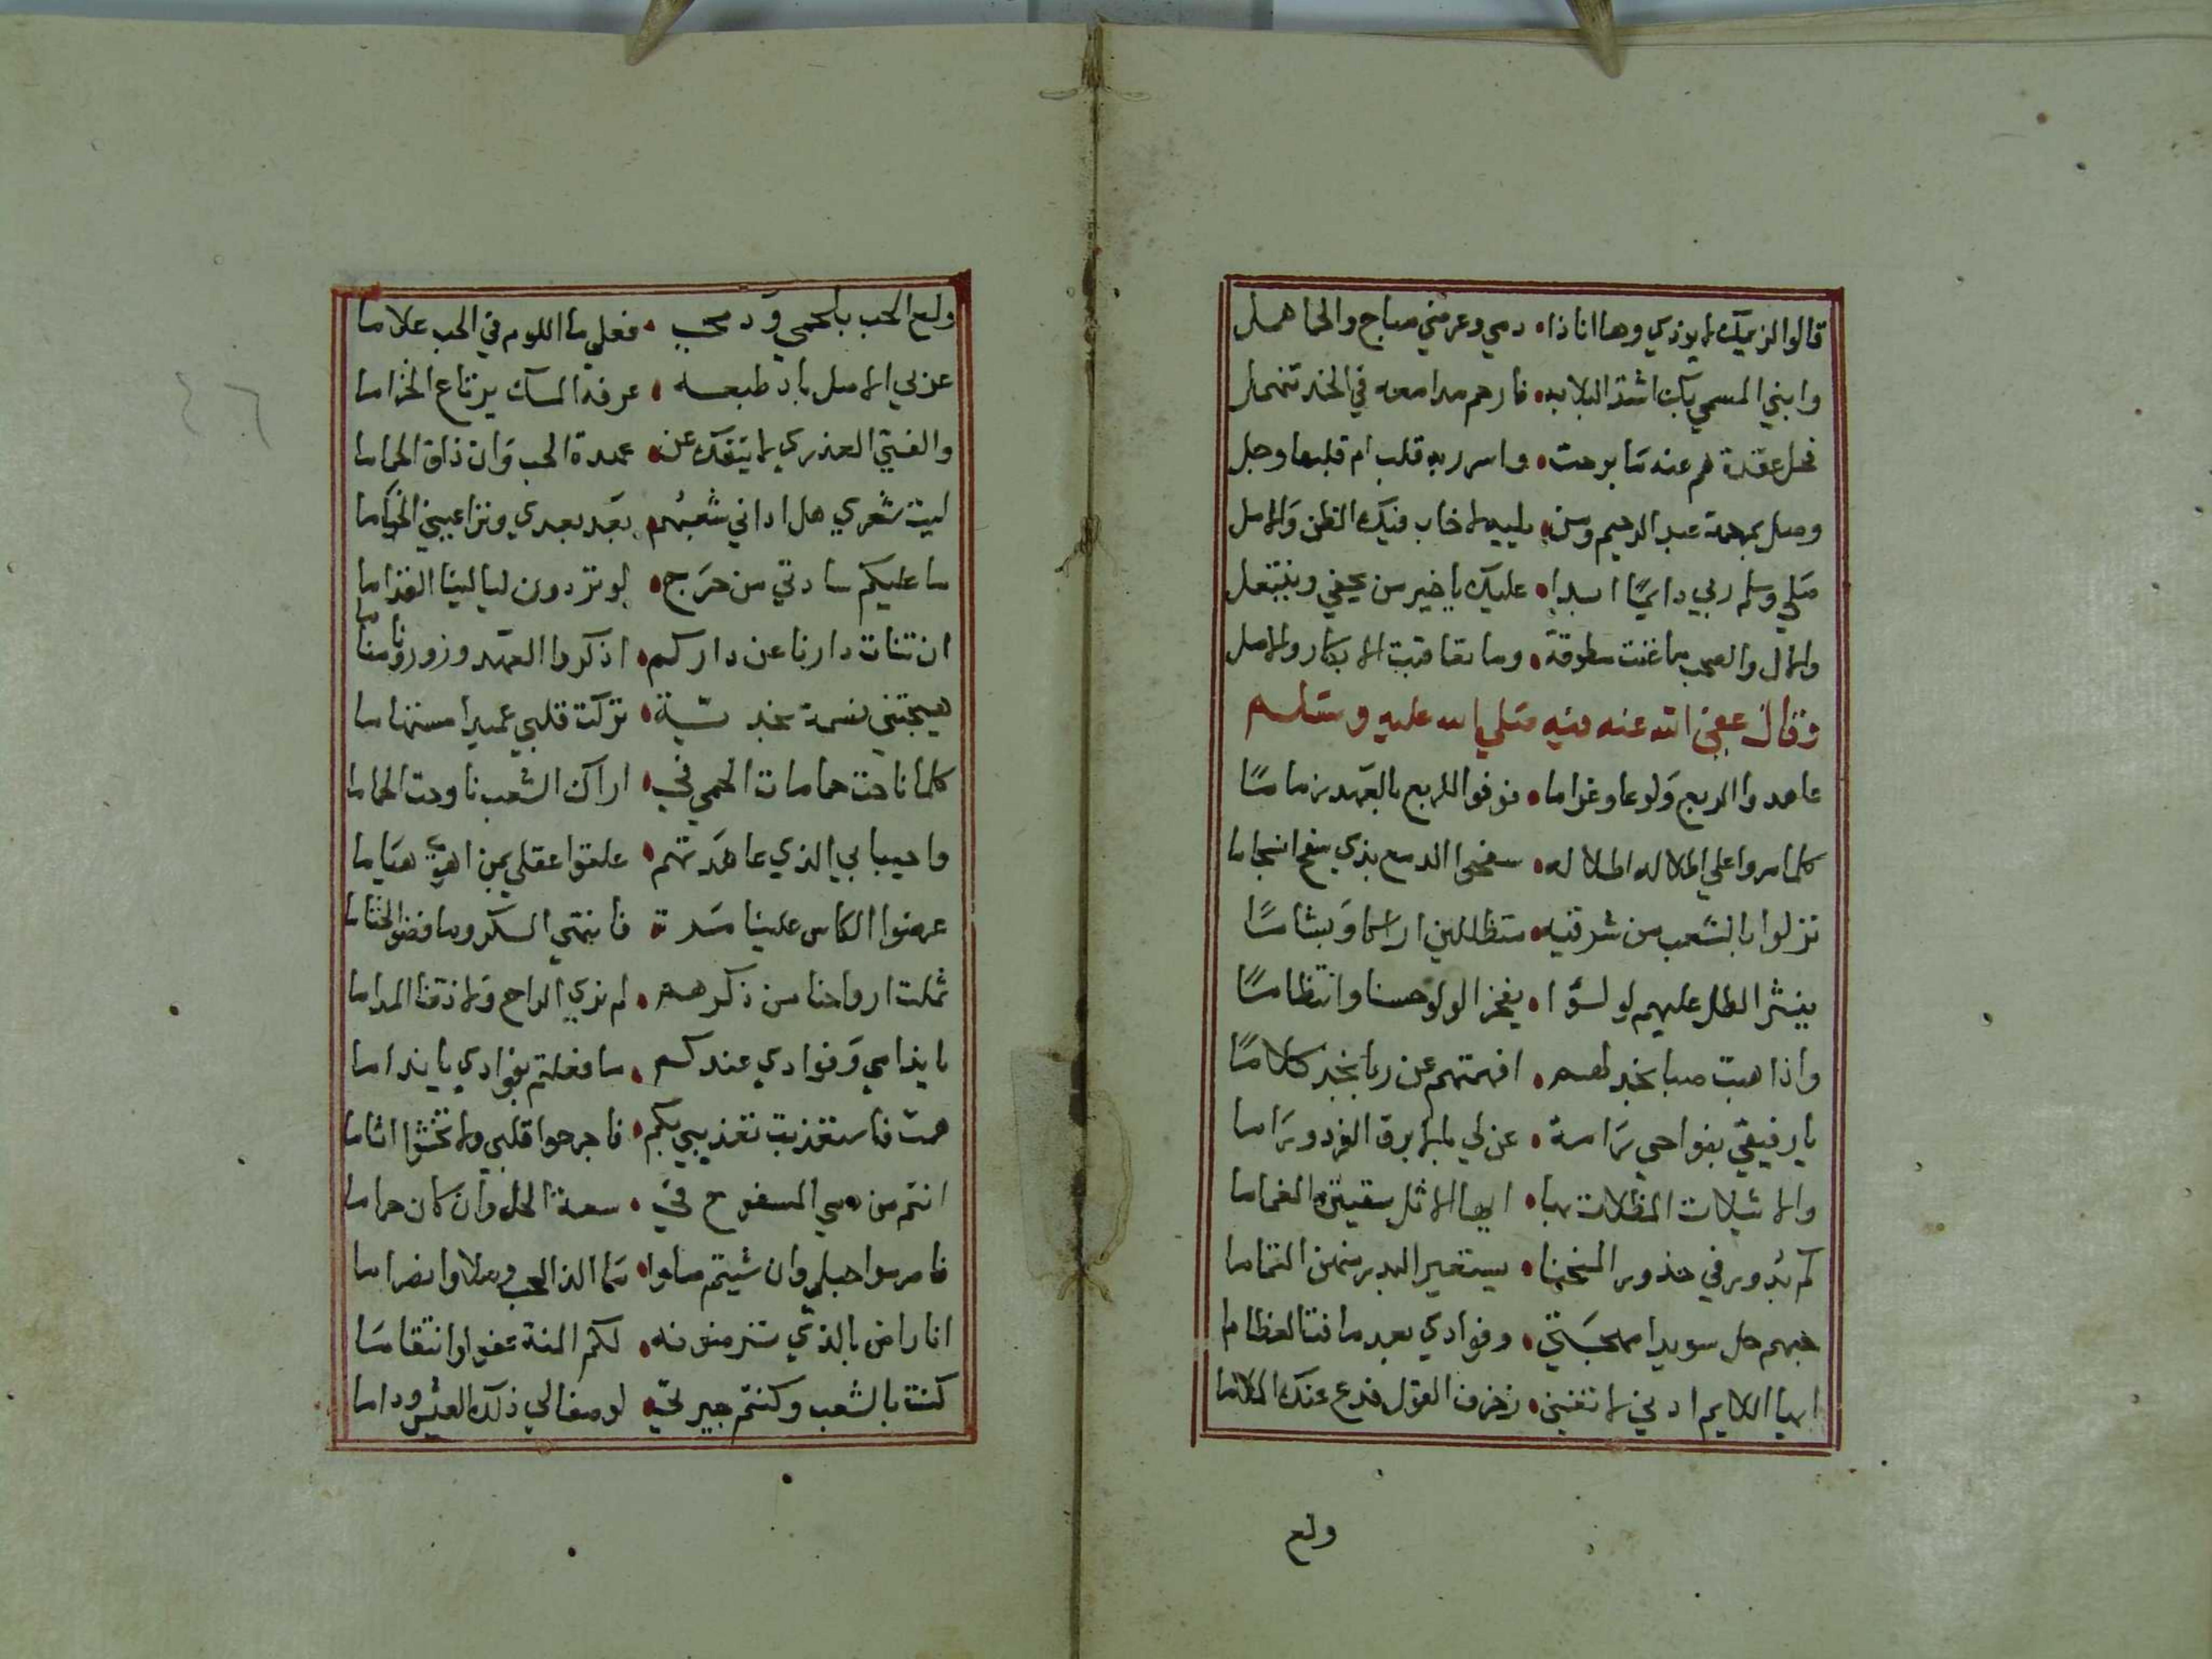 قالوا نزيلك لا يوذي وها انا ذا • دمي وعرضي مباح والحما همل
وابني المسمي بك اشتد البلا به • فارحم مدامعه في الخد تنهمل
فحل عقدة هم عنه ما برحت • واسرر به قلب ام قلبها وجل
وصل بمرحمة عبد الرحيم ومن • يليه لا خاب فيك الظن والامل
صلي وسلم ربي دايمًا ابدا • عليك يا خير من يحفي وينتعل
والال والصحب ما غنت مطوقة • وما تعاقبت الابكار والاصل
وقال عفى الله عنه فيه صلي الله عليه وسلم
عاهدوا الربع ولوعا وغراما • فوفوا للربع بالعهد زمامًا
كلما مروا علي اطلاله اطلاله • سفحوا الدمع بذي سفح انسجاما
نزلوا بالشعب من شرقيه • مستظلين اراكا وبشامًا
ينثر الطل عليهم لولؤا • يفخر الولو حسنا وانتظامًا
واذا هبت صبا نجد لهم • افهمتهم عن ربا نجد كلامًا
يا رفيقي بنواحي رامة • عن لي بالابرق الفرد وراما
والاثيلات المظلات بها • ايها الاثل سقيتن الغماما
كم بدور في خدور المنحنا • يستعير البدر منهن التماما
حبهم حل سويدا مهجتي • وفوادي بعد ما فت العظاما
ايها اللايم اذني لا تعي • زخرف القول فدع عنك الملاما
ولع
ولع الحب بلحمي ودمي • فعلي ما اللوم في الحب علاما
عزني الاصل باد طبعه • عرفه المسك يرتاع الخزاما
والفتي العذري لا ينفك عن • عهدة الحب وان ذاق الحماما
ليت شعري هل اداني شعبهم • بعد بعدي وتراعيني الخياما
ما عليكم سادتي من حرج • لو تردون ليالينا القداما
ان تنات دارنا عن داركم • اذكروا العهد وزورونا مناما
هيجتني نسمة نجدية • تركت قلبي عميدا مستهاما
كلما ناحت حمامات الحمي في • اراك الشعب ناوحت الحماما
واحيبابي الذي عاهدتهم • علقوا عقلي بمن اهوي هياما
عرضوا الكاس علينا مرة • فانتمي السكر وما فضوا الختاما
ثملت ارواحنا من ذكرهم • لم نري الراح ولا ذقنا المداما
يا ندامي وفوادي عندكم • ما فعلتم بفوادي يا نداما
همت فاستعذبت تعذيبي بكم • فاجرحوا قلبي ولا تخشوا اثاما
انتم من دمي المسفوح في • سعة الحل وان كان حراما
فاصرموا حبلي وان شيتم صلوا • ما الذ الحب وصلا وانصراما
انا راض بالذي ترضونه • لكم المنة عفوا وانتقامًا
كنت بالشعب وكنتم جيرتي • لو صفا لي ذلك العيش وداما
٤٦